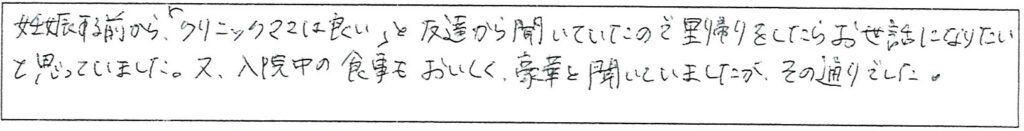 妊娠する前から、「クリニックママは良い」と友達から聞いていていたので里帰りをしたらお世話になりたい
と思っていました。又、入院中の食事もおいしく、豪華と聞いていましたが、その通りでした。